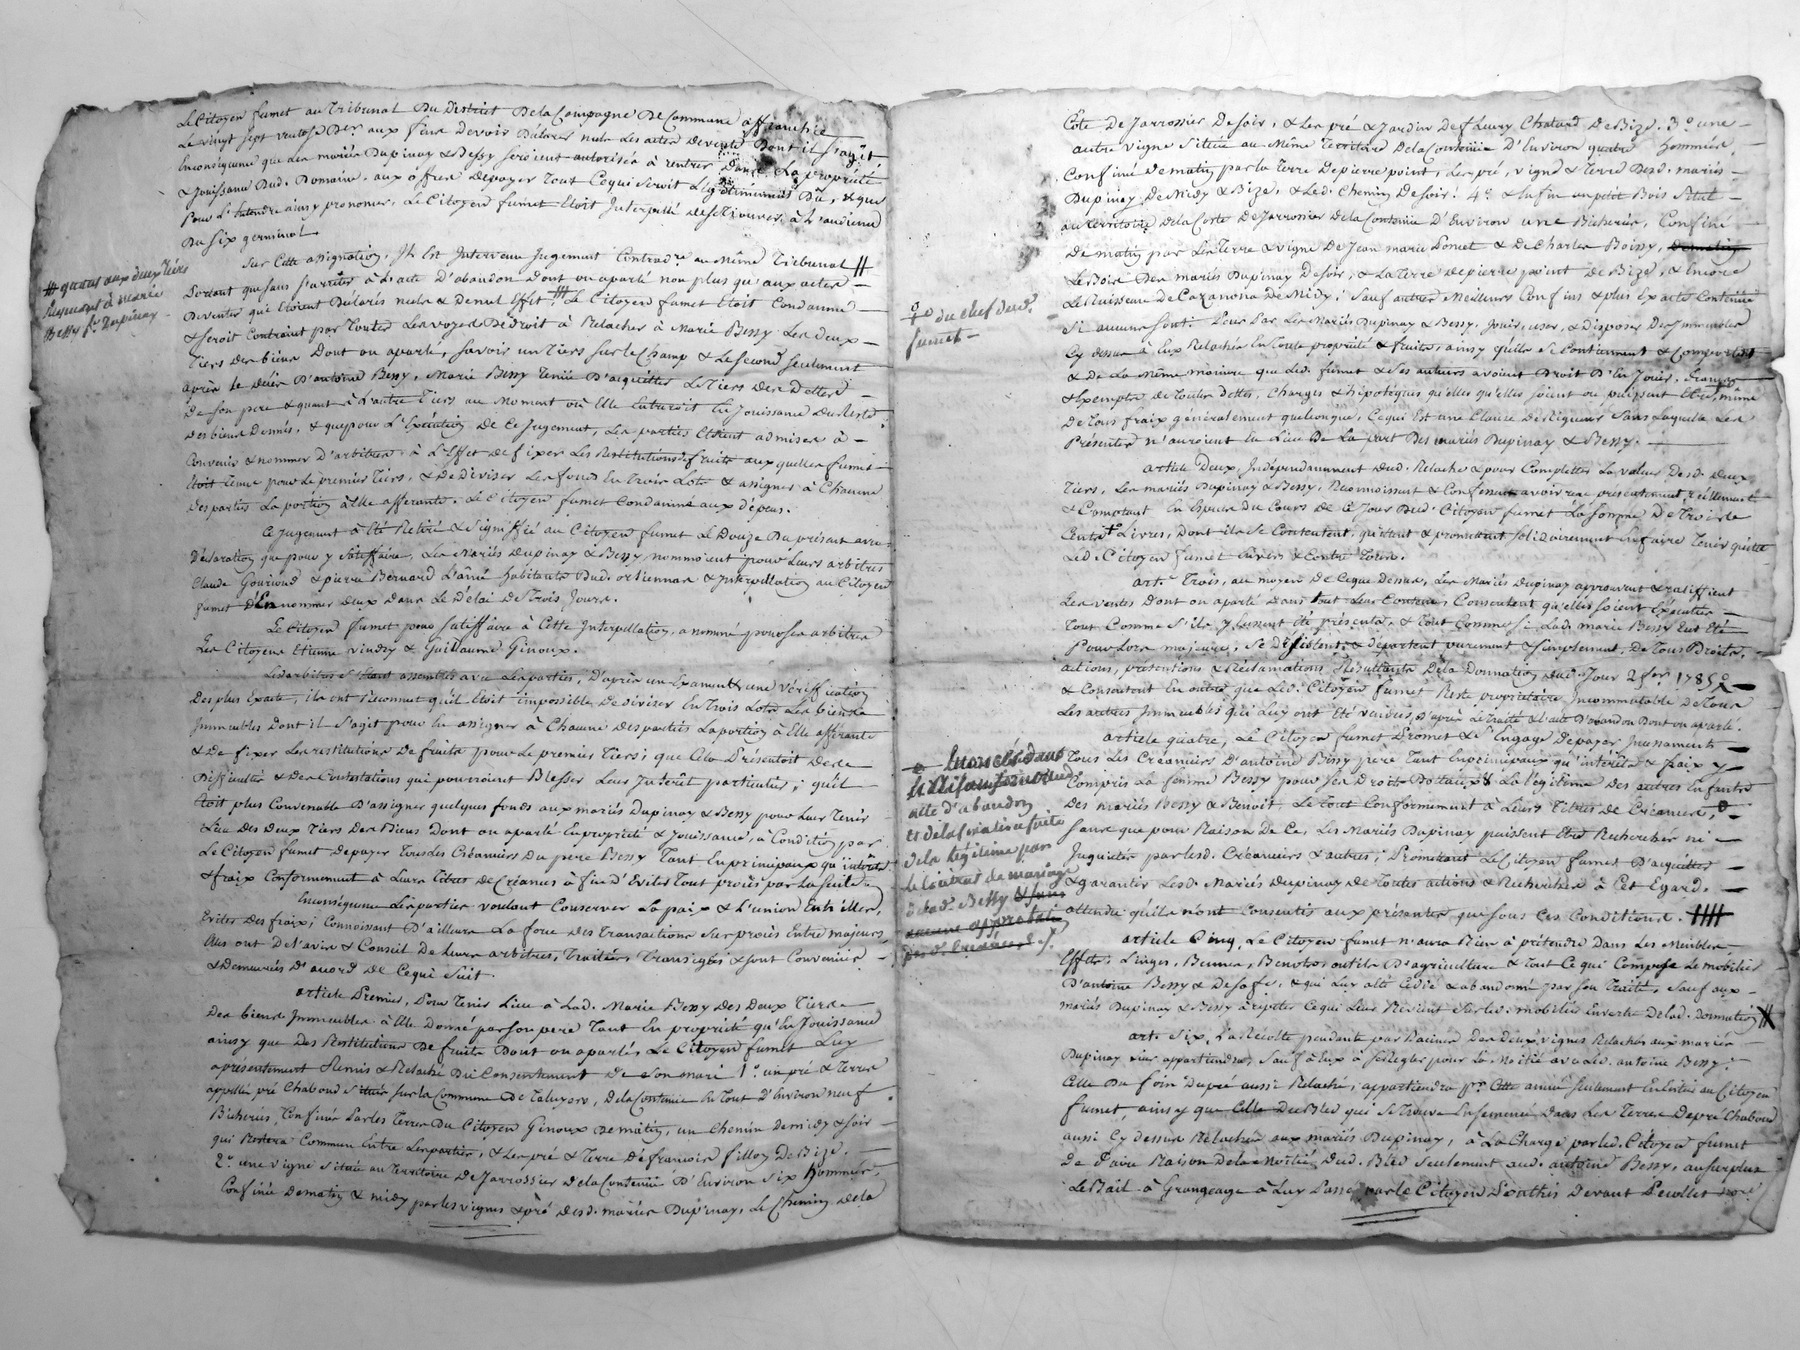 Le Citoyen fumet au Tribunal Du District De la Campagne De Commune affranchie
Le vingt sept ventose Der aux fins devoir Déclarer nuls Les actes de vente Dont il s'agit
En conséquence que Les mariés Dupinay & Bessy seroient autorisés à rentrer Dans La propriété
& Jouissance Dud. Domaine, aux offres de payer Tout Ce qui seroit Légitimement Dû, & que
Pour L'Entendre ainsy prononcer, Le Citoyen fumet Etoit Interpellé de se Trouver à L'audience
Du six germinal.
Sur Cette assignation, Il Est Intervenu Jugement Contradre au Même Tribunal #
Portant que sans s'arrêter à L'acte D'abandon Dont on a parlé non plus qu'aux actes
De ventes qui Etoient Déclarés nuls & de nul Effet #### Le Citoyen fumet Etoit Condamné
& seroit Contraint par Toutes Les voyes De Droit à Relacher à Marie Bessy Les deux
Tiers Des biens Dont on a parlé, savoir un Tiers sur Le Champ & Le second seulement
après Le décès D'antoine Bessy, Marie Bessy Tenüe D'acquitter Le Tiers Des Dettes
De son pere & quant à L'autre Tiers au Moment où Elle Entreroit En Jouissance Du Reste
Des biens Donnés, & que pour L'Exécution De Ce Jugement, Les parties Etoient admises à
Convenir & nommer D'arbitres à L'Effet de fixer Les Restitutions de fruits auxquelles fumet
Etoit Tenu pour Le premier Tiers, & De Diviser Les fonds En Trois Lots & assigner à Chacune
Des parties La portion à Elle afferante. Le Citoyen fumet Condamné aux dépens.
Ce Jugement à Eté Retiré & Signiffié au Citoyen fumet Le Douze Du présent avec
Déclaration que pour y satisffaire, Les Mariés Dupinay & Bessy nommoient pour Leurs arbitres
Claude Gouriond & pierre Bernard L'aîné habitants Dud. orlienas & Interpellation au Citoyen
fumet D'En nommer deux Dans Le Délai De Trois Jours.
Le Citoyen fumet pour satisffaire à Cette Interpellation, a nommé pour ses arbitres
Les Citoyens Etienne vindry & Guillaume Ginoux.
Lesd arbitres s'Etant assemblés avec Les parties, D'après un Examen & une vériffication
Des plus Exacte, ils ont Reconnut qu'il Etoit impossible De diviser En Trois Lots Les biens
Immeubles Dont il s'agit pour En assigner à Chacune Des parties La portion à Elle afferante
& De fixer Les restitutions De fruits pour Le premier Tiers; que Cela Présentoit Des
Difficultés & Des Contestations qui pourroient Blesser Leur Intérêt particulier; qu'il
Etoit plus Convenable D'assigner quelques fonds aux mariés Dupinay & Bessy pour Leur Tenir
Lieu Des Deux Tiers Des Biens Dont on a parlé En propriété & Jouissance, à Condition par
Le Citoyen fumet De payer Tous Les Créanciers Du pere Bessy Tant En principaux qu'intérêts
& fraix Conformement à Leurs Titres De Créances à fin D'Eviter Tout procès par La suite.
En conséquence Les parties voulant Conserver La paix & L'union Entr'elles,
Eviter Des fraix; Connoissant D'ailleurs La force Des Transactions sur procès Entre majeurs,
Elles ont De L'avis & Conseil De Leurs arbitres, Traités, Transigés & sont Convenües
& Demeurées D'accord De Ce qui Suit.
article Premier, Pour Tenir Lieu à Lad. Marie Bessy Des Deux Tiers
Des biens Immeubles à Elle Donné par son pere Tant En propriété qu'En Jouissance
ainsy que Des Restitutions De fruits Dont on a parlé, Le Citoyen fumet Luy
a présentement Remis & Relaché Du Consentement De son mari 1°. un pré & Terre
appellé pré Chabond Situés sur La Commune De Taluyers, De La Contenüe En Tout D'Environ neuf
Bicherées, Confinés Par les Terres Du Citoyen Ginoux De matin, un Chemin De midy & soir
qui Restera Commun Entre Les parties, & Les pré & Terre De françois fillon De Bize.
2°. une vigne Située au Territoire De Jarrossier De La Contenüe D'Environ Six hommées,
Confinée De matin & midy par Les vignes & pré Des d. mariés Dupinay, Le Chemin De La
# quant aux deux tiers
Revenant à marie
Bessy fe. Dupinay
Cote De Jarrossier De soir, & Les pré & Jardin De fleury Chatard De Bize. 3°. une
autre vigne Située au Même Territoire De La Contenüe D'Environ quatre hommées,
Confinée De matin par La Terre De pierre point, Les pré, vigne & Terre Desd. mariés
Dupinay De Midy & Bize, & Led. Chemin De soir. 4°. & Enfin un petit Bois Situé
au Territoire De La Coste De Jarrossier De La Contenüe D'Environ une Bicherée, Confiné
De matin par Les Terre & vigne De Jean marie Poncet & De Charles Boissy,
Le Bois Des mariés Dupinay De soir, & La Terre De pierre point De Bize, & Encore
Le Ruisseau De Cazanona De Midy; Sauf autres Meilleurs Confins & plus Exacte Contenüe
Si aucuns sont. Pour Par Les Mariés Dupinay & Bessy, Jouir, user, & Disposer Des Immeubles
Cy dessus à Eux Relachés En Toute propriété & fruits, ainsy qu'ils se Contiennent & Comportent
& De La Même maniere que Led. fumet & ses auteurs avoient Droit D'En Jouir, francs
& Exempts de Toutes dettes, Charges & hipoteques qu'elles qu'elles soient ou puissent Etre, même
De Tous fraix généralement quelconque, Ce qui Est une Clause De Rigueur sans Laquelle Les
Présentes n'auroient Eu Lieu De La part Des mariés Dupinay & Bessy.
article Deux, Indépendamment Dud. Relaché & pour Completter La valeur Desd. deux
Tiers, Les mariés Dupinay & Bessy, Reconnoissent & Confessent avoir reçu présentement, réellement
& Comptant En Espece Du Cours De Ce Jour Dud. Citoyen fumet La somme De Trois
Cents Livres, Dont ils se Contentent, quittent & promettent solidairement En faire Tenir quitte
Led. Citoyen fumet Envers & Contre Tous.
art. Trois, au moyen De Ce que Dessus, Les Mariés Dupinay approuvent & ratiffient
Les ventes Dont on a parlé Dans tout Leur Contenu, Consentent qu'elles soient Exécutées
Tout Comme s'ils y avoient été présents, & tout Comme si Lad. marie Bessy Eut Eté
Pour Lors majeure, Se Desistent & départent purement & simplement, De Tous Droits,
actions, prétentions & Réclamations Résultants De La Donnation dud. Jour 2 fer 1785
& Consentent En outre que Led. Citoyen fumet Reste propriétaire Incommutable De Tous
Les autres Immeubles qui Luy ont Eté vendus, D'après Le Traité & L'acte D'abandon Dont on a parlé.
article quatre, Le Citoyen fumet Promet & s'Engage De payer Incessament
Tous Les Créanciers D'antoine Bessy pere Tant En principaux qu'intérêts & fraix y
Compris La femme Bessy pour ses Droits Dotaux & La Légitime Des autres Enfants
Des mariés Bessy & Benoit. Le Tout Conformement à Leurs Titres De Créances,
sans que pour Raison De Ce, Les Mariés Dupinay puissent Etre Recherchés ni
Inquiétés par Lesd. Créanciers & autres; Promettant Le Citoyen fumet D'acquitter
& garantir Lesd. Mariés Dupinay De Toutes actions & Recherches à Cet Egard.
attendu qu'ils n'ont Consentis aux présentes que sous Ces Conditions. ####
article Cinq, Le Citoyen fumet n'aura Rien à prétendre Dans Les Meubles
Effets, Linges, Bennes, Benots, outils D'agriculture & Tout Ce qui Compose Le mobilier
D'antoine Bessy & De sa fe, & qui Luy a été Cédé & abandonné par son Traité, Sauf aux
mariés Dupinay & Bessy à répéter Ce qui Leur Revient sur Led. mobilier En vertu De Lad. Donnation #
art. Six, La Récolte pendante par Racines Des Deux vignes Relachés aux mariés
Dupinay Leur appartiendra, Sauf à Eux à se Regler pour La Moitié avec Led. antoine Bessy.
Celle Du foin Du pré aussi Relaché, appartiendra pr Cette année seulement En Entier au Citoyen
fumet, ainsy que Celle Des Bled qui se Trouve Ensemencé Dans Les Terres De pré Chabond
aussi Cy dessus Relachées aux mariés Dupinay, à La Charge par Led. Citoyen fumet
De faire Raison De La Moitié Dud. Bled seulement aud. antoine Bessy, au surplus
Le Bail à Grangeage à Luy Passé par Le Citoyen Souttis Devant
du chef dud.
fumet
acte d'abandon
et de la fixation faite
de la légitime par
le contrat de mariage
de lad. Bessy